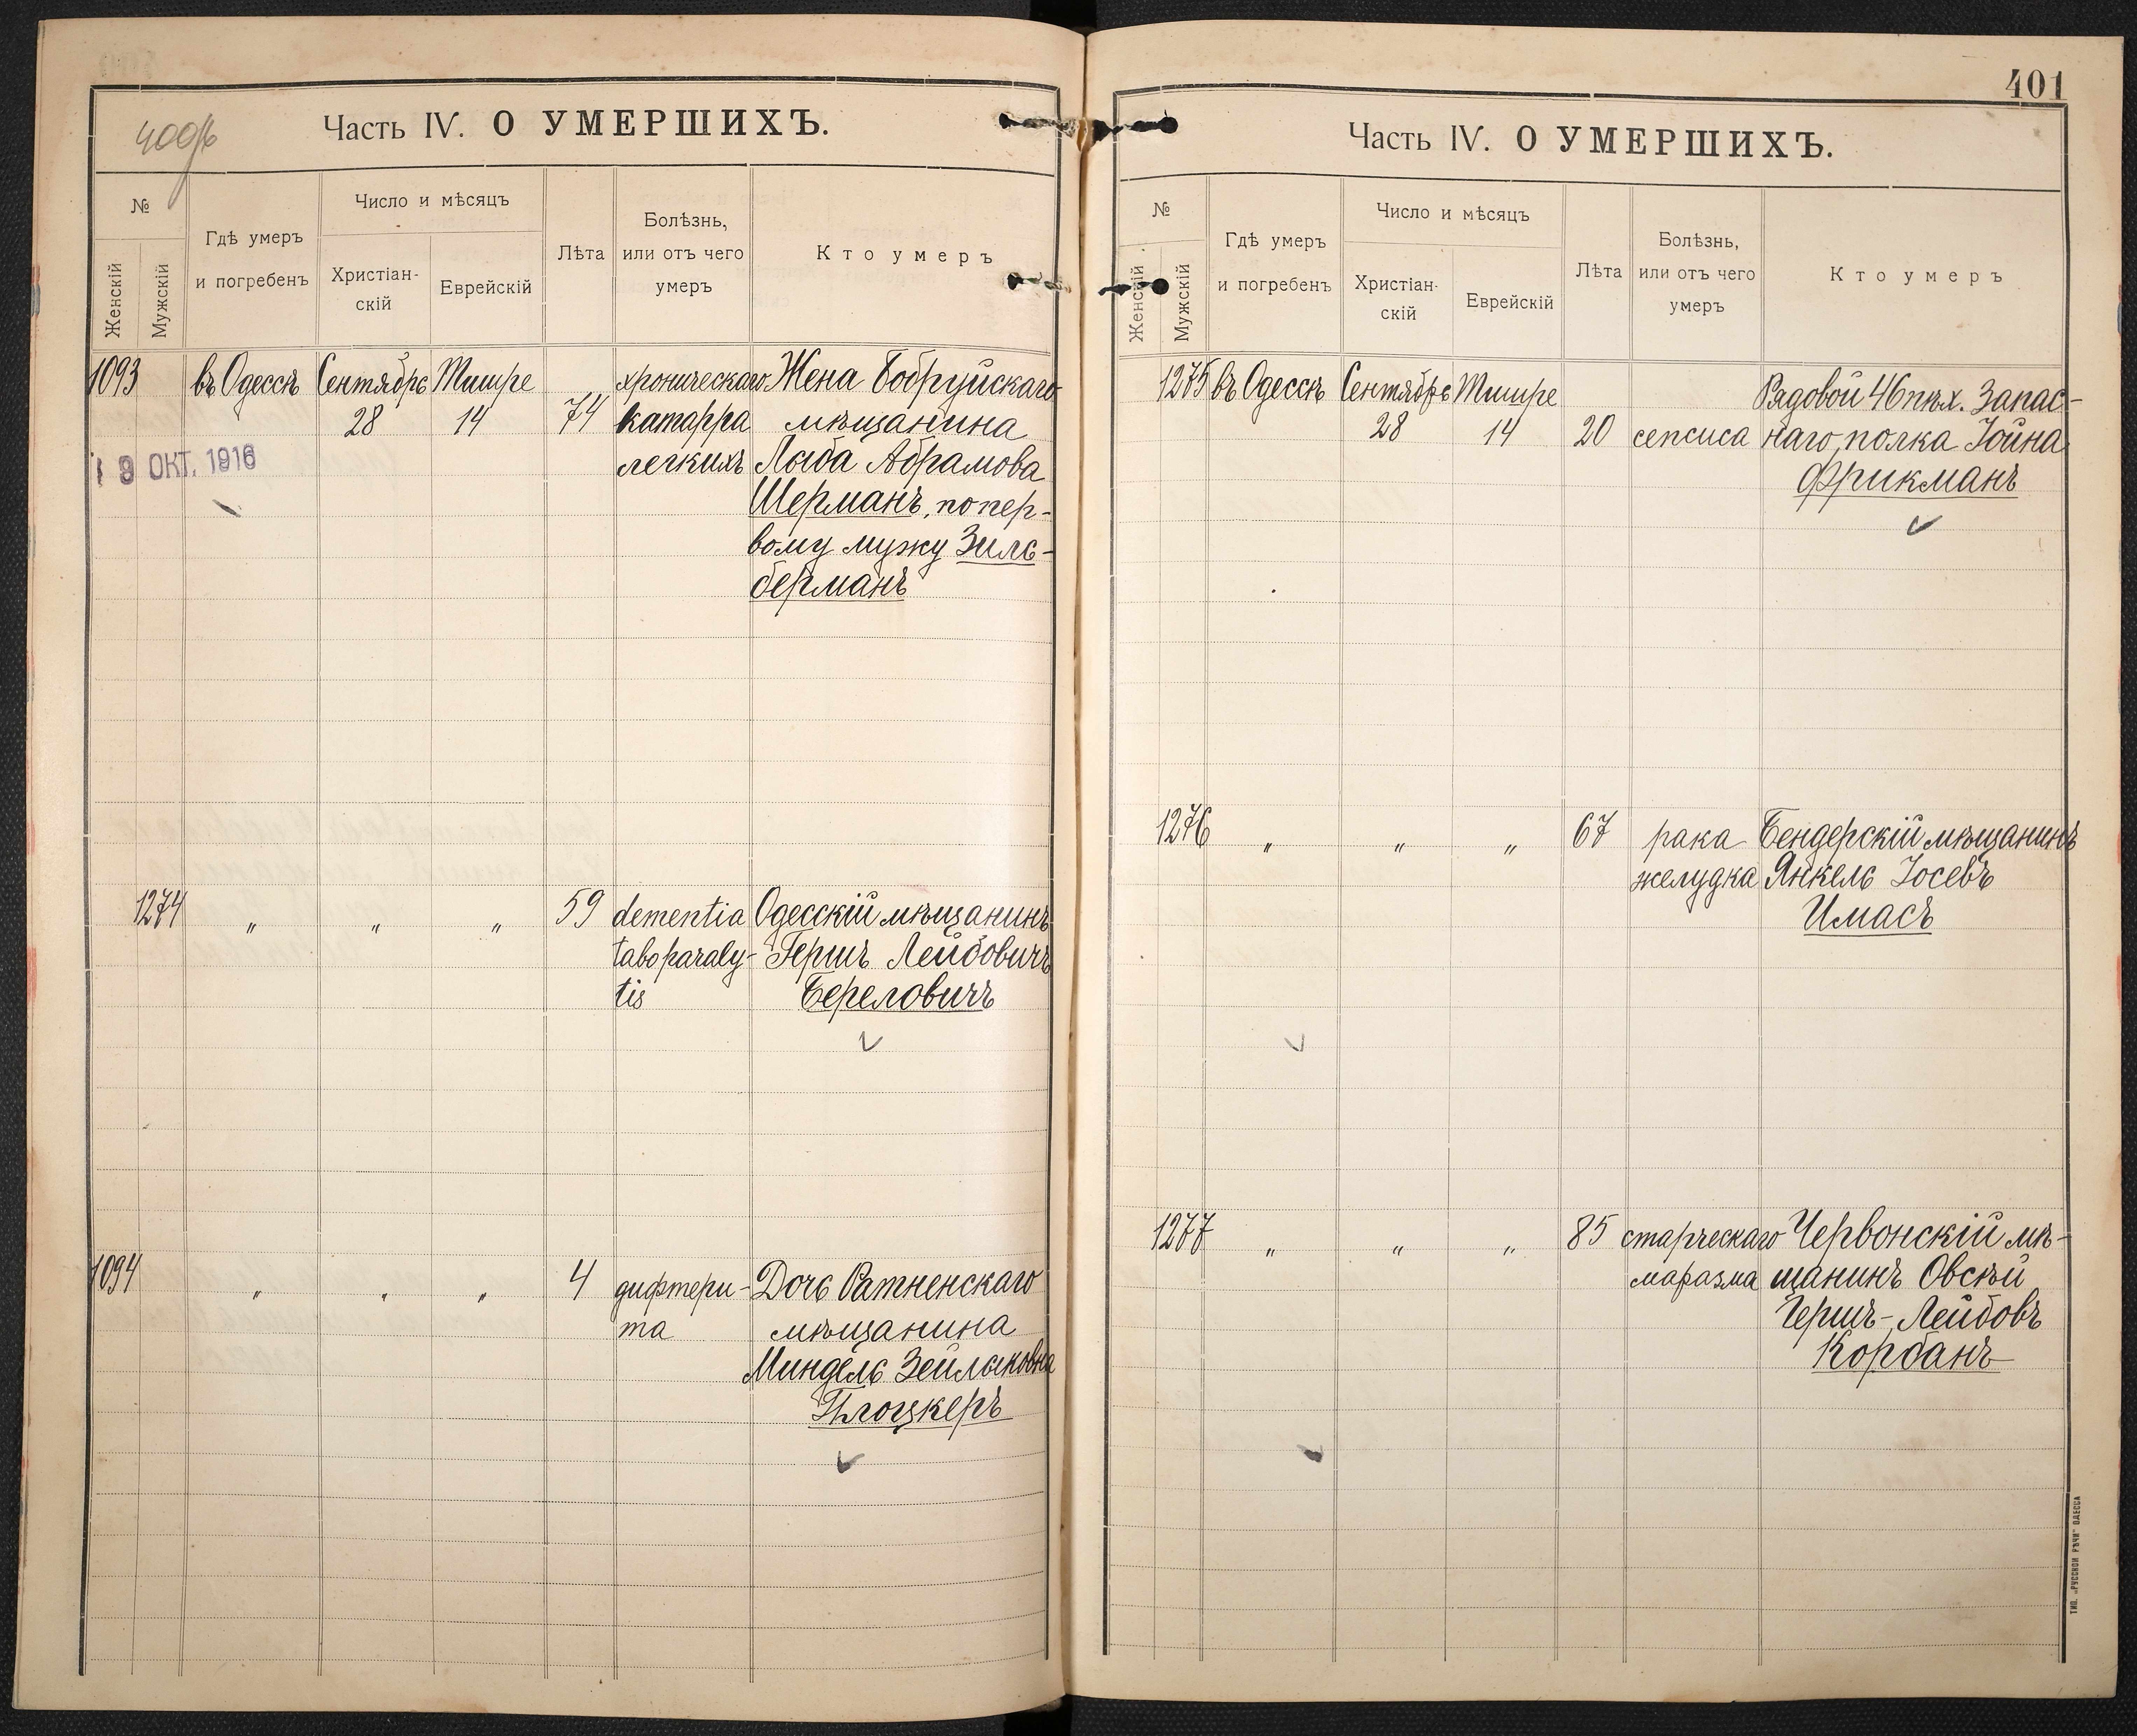 400об
Часть IV. О УМЕРШИХЪ.
№
Женскій
Мужскій
Гдѣ умеръ
и погребенъ
Число и мѣсяцъ
Христіан-
скій
Еврейскій
Лѣта
Болѣзнь,
или отъ чего
умеръ
Кто умеръ
1093 въ Одессѣ Сентябрь Тишре хроническаго Жена Бобруйскаго
28 14 74 катарра мѣщанина
19 ОКТ. 1916 легкихъ Лыба Абрамова
Шерманъ, по пер-
вому мужу Зиль-
берманъ
1274 " " " 59 dementia Одесскій мѣщанинъ
taboparaly- Гершъ Лейбовичъ
tis Береловичъ
1094 " " " 4 дифтери- Дочь Ратненскаго
та мѣщанина
Миндель Зейлыковна
Плоцкеръ
401
Часть IV. О УМЕРШИХЪ.
№
Женскій
Мужскій
Гдѣ умеръ
и погребенъ
Число и мѣсяцъ
Христіан-
скій
Еврейскій
Лѣта
Болѣзнь,
или отъ чего
умеръ
Кто умеръ
1275 въ Одессѣ Сентябрь Тишре Рядовой 46 пѣх. Запас-
28 14 20 сепсиса наго полка Іойна
Фрикманъ
1276 " " " 67 рака Бендерскій мѣщанинъ
желудка Янкель Іосевъ
Имасъ
1277 " " " 85 старческаго Червонскій мѣ-
маразма щанинъ Овсѣй
Гершъ-Лейбовъ
Корбанъ
ТИП. „РУССКОЙ РѢЧИ" ОДЕССА